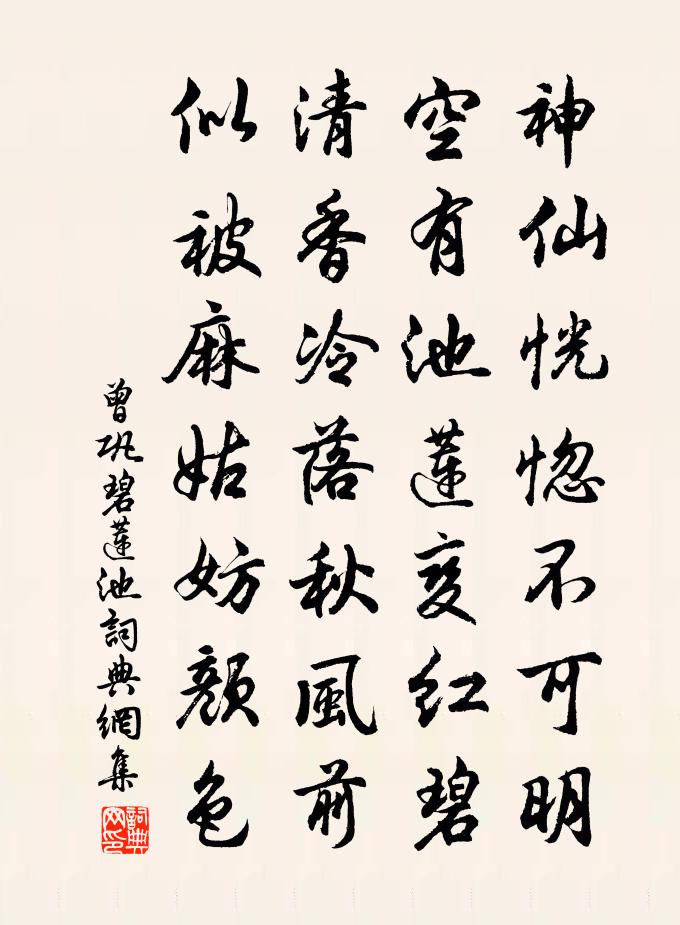 神仙恍惚不可明
空有池蓮變紅碧
清香冷落秋風前
似被麻姑妨顏色
曾巩碧蓮池詞典網集
詞典网印